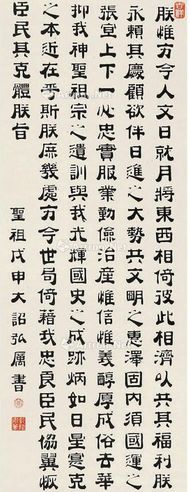 朕惟方今人文日就月將東西相倚彼此相濟以共其福利朕
永賴其慶顧欲伴日進之大勢共文明之惠澤固内須國運之
張宜上下一心忠實服業勤儉治產惟信惟義醇厚成俗去華
抑我神聖祖宗之遺訓與我光輝國史之成跡炳如日星寔克
之本近在乎斯朕庶幾處方今世局倚藉我忠良臣民協翼恢
臣民其克體朕旨
聖祖戊申大詔弘厲書